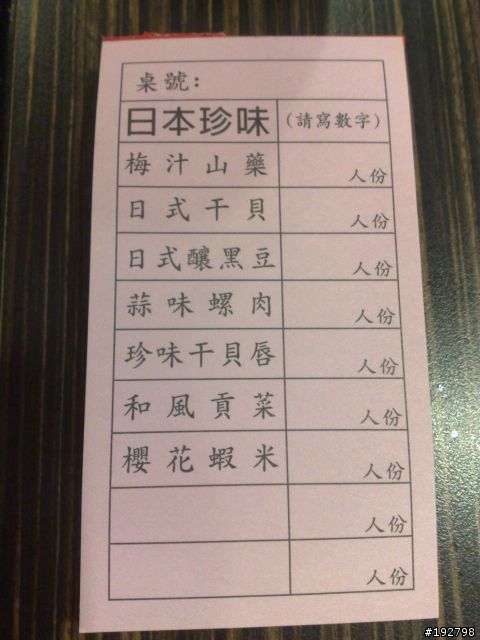 桌號:
日本珍味 (請寫數字)
梅汁山藥 人份
日式干貝 人份
日式釀黑豆 人份
蒜味螺肉 人份
珍味干貝唇 人份
和風貢菜 人份
櫻花蝦米 人份
人份
人份
#192798